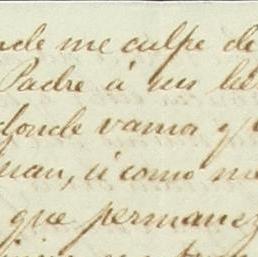 nde me culpe de
Padre á sus
donde vamos
man, si como me
que permanez